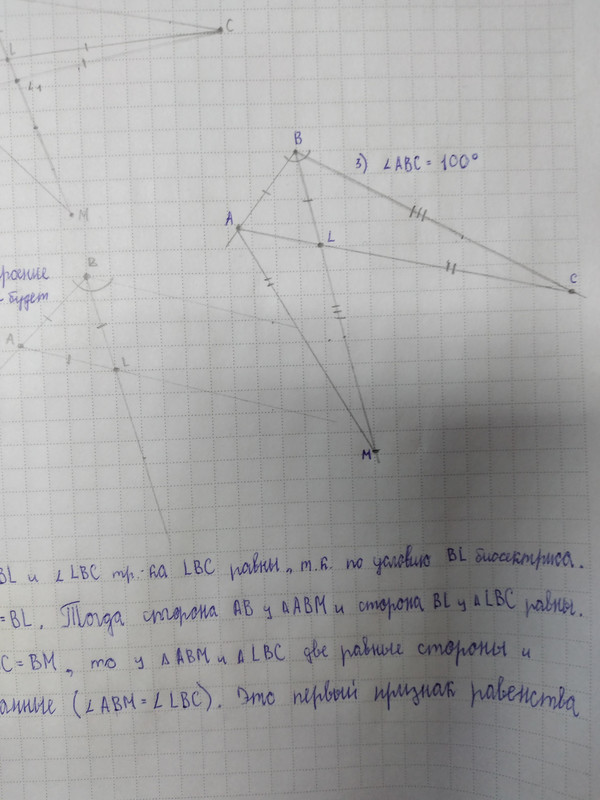 L
C
L1
M
B
3) ∠ABC = 100°
A
L
C
M
будет
B
A
L
BL и ∠LBC тр.-ка LBC равны, т.к. по условию BL биссектриса.
=BL. Тогда сторона AB у △ABM и сторона BL у △LBC равны.
C=BM, то у △ABM и △LBC две равные стороны и
(∠ABM=∠LBC). Это первый признак равенства